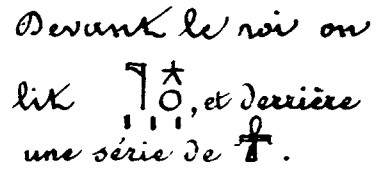 Devant le roi on
lit 𓊹𓇼𓏥, et derrière
une série de 𓋹.